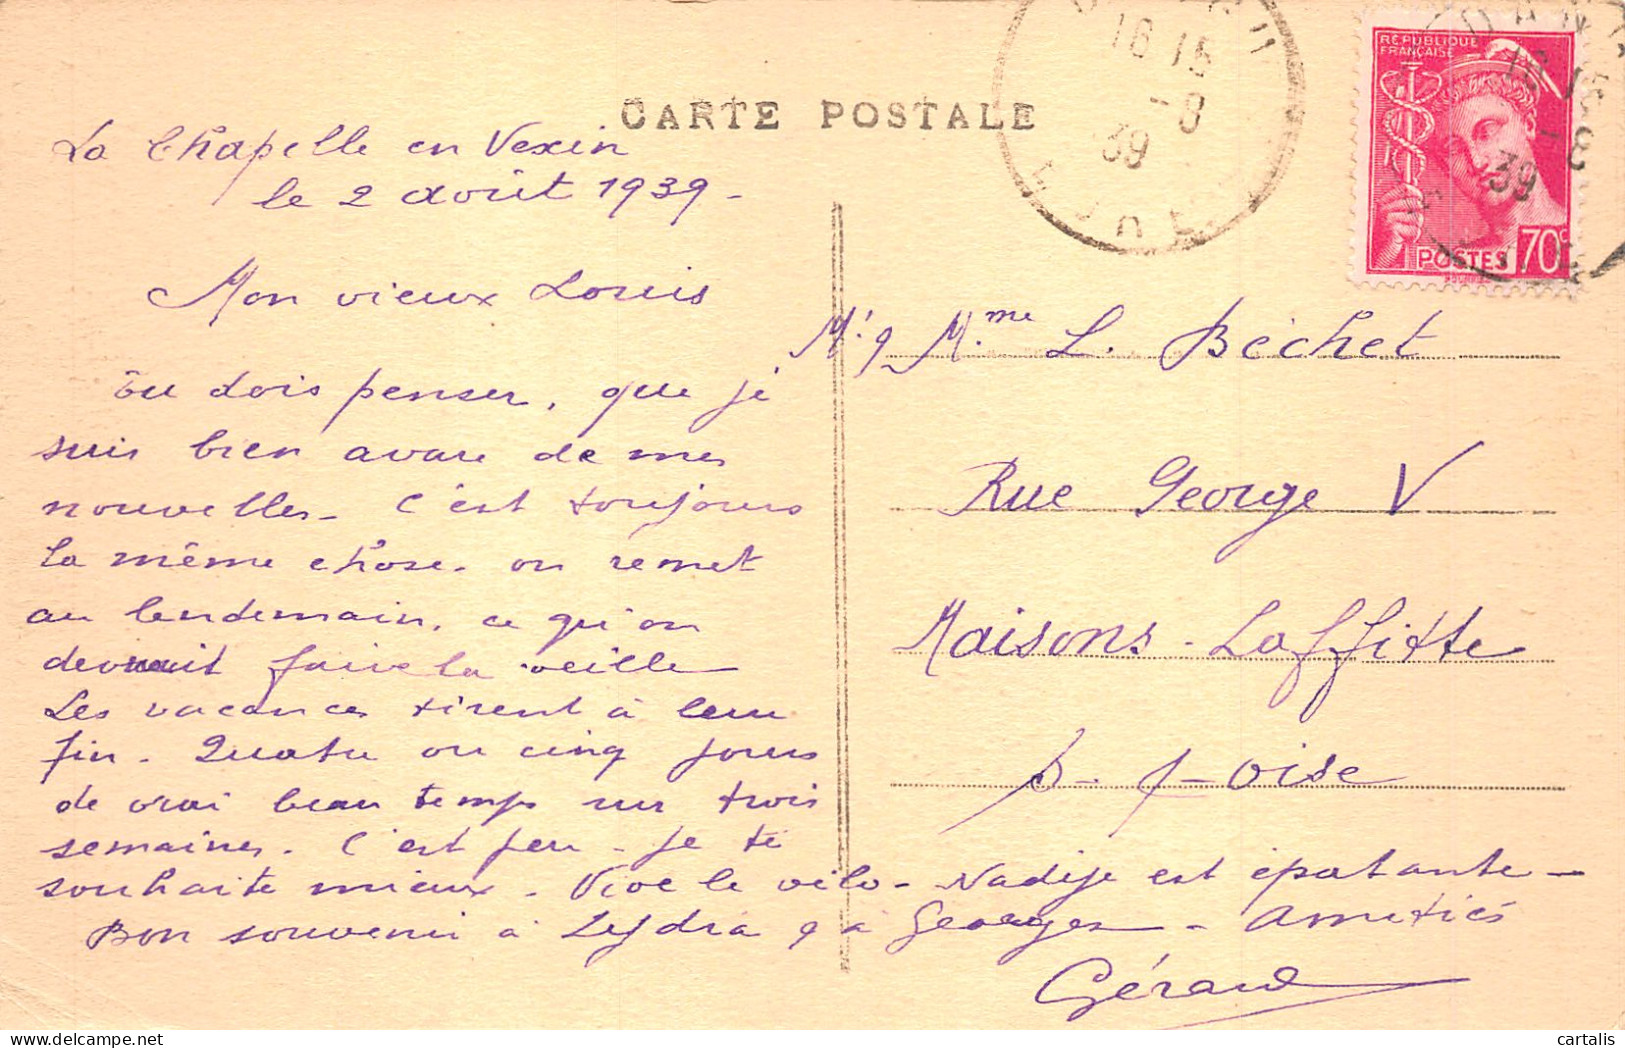 CARTE POSTALE
RÉPUBLIQUE
FRANÇAISE
POSTES 70c
16 15
-8
39
EURE
16 15
-8
39
La Chapelle en Vexin
le 2 août 1939-
Mon vieux Louis
Tu dois penser, que je
suis bien avare de mes
nouvelles- C'est toujours
la même chose. on remet
au lendemain, ce qu'on
devrait faire la veille
Les vacances tirent à leur
fin. Quatre ou cinq jours
de vrai beau temps sur trois
semaines. C'est peu - je te
souhaite mieux. Vive le vélo- Nadije est épatante-
Bon souvenir à Lydia & à Georges- Amitiés
Gérard
Mr & Mme L. Béchet
Rue George V
Maisons-Laffitte
S-&-Oise
cartalis